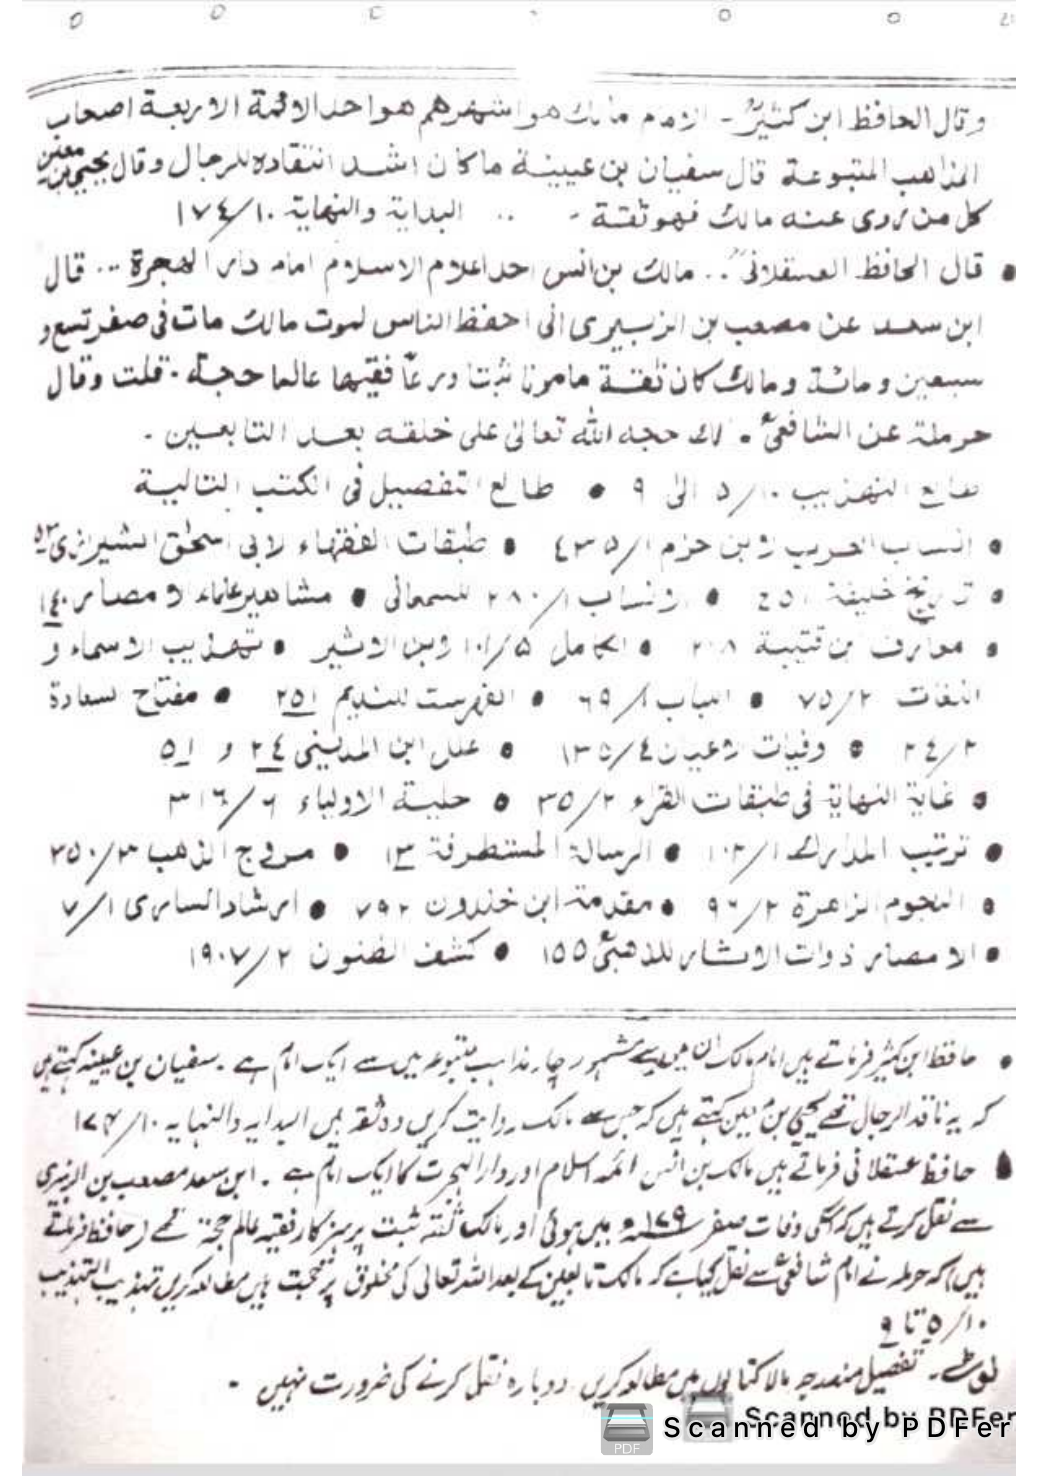 وقال الحافظ ابن كثيرؒ - الامام مالك هو اشهرهم هو احد الائمة الاربعة اصحاب
المذاهب المتبوعة قال سفيان بن عيينة ما كان اشد انتقاده للرجال وقال يحيى بن معين
كل من روى عنه مالك فهو ثقة - .. البداية والنهاية ١٠/١٧٤
• قال الحافظ العسقلانیؒ .. مالك بن انس احد اعلام الاسلام امام دار الهجرة ... قال
ابن سعد عن مصعب بن الزبيرى انى احفظ الناس لموت مالك مات فى صفر تسع و
سبعين ومائة ومالك كان ثقة مامونا ثبتا ورعا فقيها عالما حجة . قلت وقال
حرملة عن الشافعیؒ . مالك حجة الله تعالى على خلقه بعد التابعين -
التهذيب ١٠/٥ الى ٩ • طالع التفصيل فى الكتب التالية
• انساب العرب لابن حزم ١/٤٣٥ • طبقات الفقهاء لابى اسحق الشيرازى ٥٣
• تاريخ خليفة ٤٥١ • الانساب ١/٢٨٠ للسمعانى • مشاهير علماء الامصار ١٤٠
• معارف بن قتيبة ٢٠٨ • الكامل ٥/١٠١ لابن الاثير • تهذيب الاسماء و
اللغات ٢/٧٥ • اللباب ١/٦٩ • الفهرست للنديم ٢٥١ • مفتاح لسعادة
٢/٢٤ • وفيات الاعيان ٤/١٣٥ • علل ابن المدينى ٢٤ و ٥١
• غاية النهاية فى طبقات القراء ٢/٣٥ • حلية الاولياء ٦/٣١٦
• ترتيب المدارك ١/١٠٢ • الرسالة المستطرفة ١٣ • مروج الذهب ٣/٣٥٠
• النجوم الزاهرة ٢/٩٦ • مقدمة ابن خلدون ٧٩٢ • ارشاد السارى ١/٧
• الامصار ذوات الاثار للذهبیؒ ١٥٥ • كشف الظنون ٢/١٩٠٧
• حافظ ابن کثیر فرماتے ہیں امام مالک ان میں سے مشہور چار مذاہب متبوعہ میں سے ایک امام ہے ۔ سفیان بن عیینہ کہتے ہیں
کہ یہ ناقد الرجال تھے یحیی بن معین کہتے ہیں کہ جس سے مالک روایت کریں وہ ثقہ ہیں البدایہ والنہایہ ۱۰/۱۷۴
• حافظ عسقلانی فرماتے ہیں مالک بن انس ائمہ اسلام اور دار الہجرت کا ایک امام ہے ۔ ابن سعد مصعب بن الزبیری
سے نقل کرتے ہیں کہ انکی وفات صفر ۱۷۹ھ میں ہوئی اور مالک ثقہ ثبت پرہیزگار فقیہ عالم حجۃ تھے (حافظ فرماتے
ہیں) کہ حرملہ نے امام شافعیؒ سے نقل کیا ہے کہ مالک تابعین کے بعد اللہ تعالی کی مخلوق پر حجت ہیں مطالعہ کریں تہذیب التہذیب
۱۰/۵ تا ۹
نوٹ:۔ تفصیل مندرجہ بالا کتابوں میں مطالعہ کریں دوبارہ نقل کرنے کی ضرورت نہیں ۔
Scanned by PDFer
Scanned by PDFer
PDF